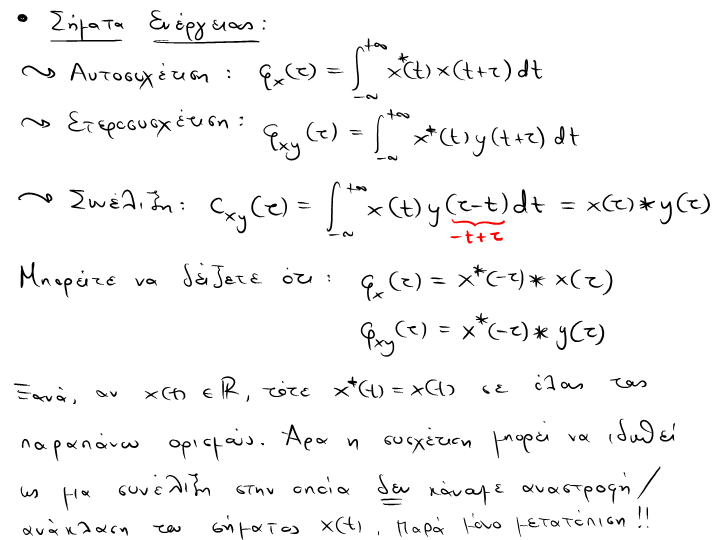 • Σήματα Ενέργειας:
⤳ Αυτοσυχέτιση: φ_x(τ) = ∫_{-∞}^{+∞} x*(t) x(t+τ) dt
⤳ Ετεροσυσχέτιση: φ_{xy}(τ) = ∫_{-∞}^{+∞} x*(t) y(t+τ) dt
⤳ Συνέλιξη: C_{xy}(τ) = ∫_{-∞}^{+∞} x(t) y(τ-t) dt = x(τ) * y(τ)
-t+τ
Μπορείτε να δείξετε ότι: φ_x(τ) = x*(-τ) * x(τ)
φ_{xy}(τ) = x*(-τ) * y(τ)
Ξανά, αν x(t) ∈ ℝ, τότε x*(t) = x(t) σε όλους τους
παραπάνω ορισμούς. Άρα η συσχέτιση μπορεί να ιδωθεί
ως μια συνέλιξη στην οποία δεν κάναμε αναστροφή/
ανάκλαση του σήματος x(t), παρά μόνο μετατόπιση!!